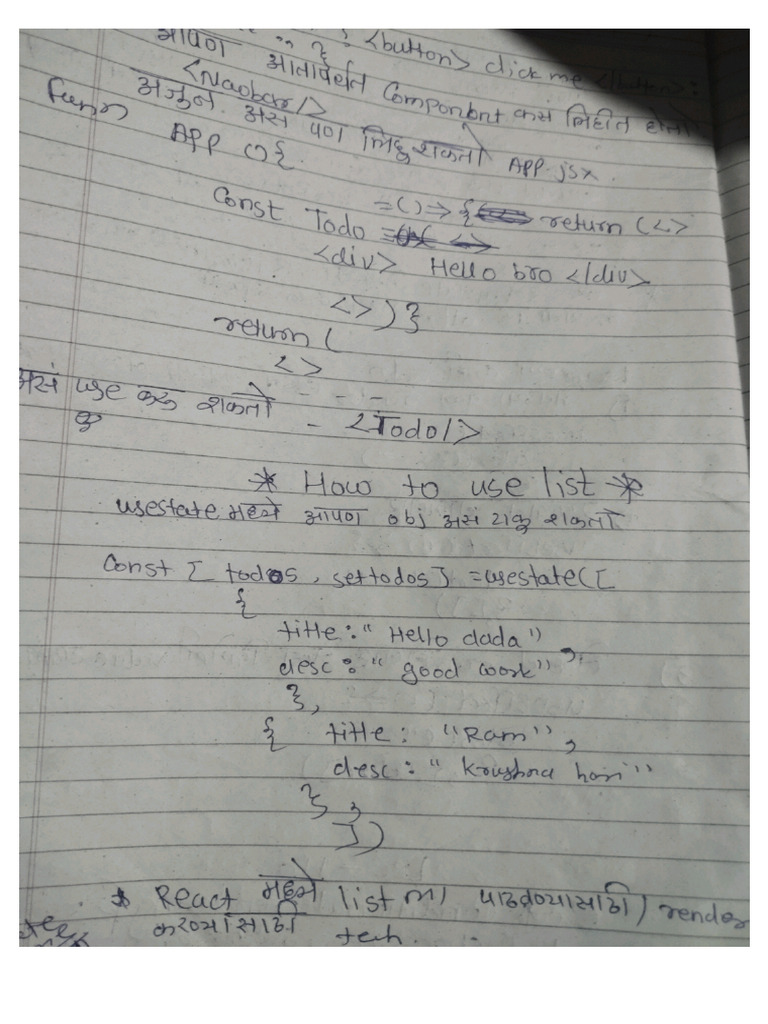 <button> click me <button>:
आपण आतापर्यंत Component कसं लिहीत होतो
<Navbar/>
अजुन असं पण लिहू शकतो App.jsx
Funn App () {
Const Todo = () => { return (<>
<div> Hello bro </div>
<>)}
return (
<>
असं use करू शकतो - - - -
- <Todo/>
* How to use list *
usestate मध्ये आपण obj असं टाकू शकतो
Const [ todos , settodos] = usestate([
{
title: "Hello dada"
desc: "good work" ,
},
{ title: "Ram",
desc: "Krushna hari"
},
])
* React मध्ये list ला पाठवण्यासाठी / render
करण्यासाठी